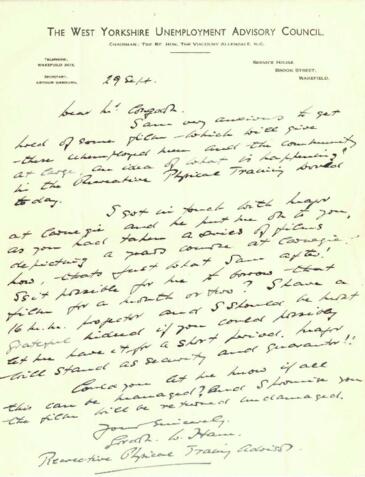 THE WEST YORKSHIRE UNEMPLOYMENT ADVISORY COUNCIL.
CHAIRMAN: THE RT. HON. THE VISCOUNT ALLENDALE, K.G.
TELEPHONE:
WAKEFIELD
SECRETARY:
ARTHUR
SERVICE HOUSE
BROOK STREET,
WAKEFIELD.
29 Sept.
Dear Mr.
I am very anxious to get
hold of some film - which will give
these unemployed men and the community
at large, an idea of what is happening
in the Recreative Physical Training World
to day.
I got in touch with Major
at Carnegie and he put me on to you,
as you had taken a series of films
depicting a years course at Carnegie.
Now, thats just what I am after!
Is it possible for me to borrow that
film for a month or two? I have a
16 m.m. projector and I should be most
grateful indeed if you could possibly
let me have it, for a short period. Major
will stand as security and guarantor!!
Could you let me know if all
this can be managed? And I promise you
the film will be returned undamaged.
Yours sincerely,
W. Ham.
Recreative Physical Training Advisor.